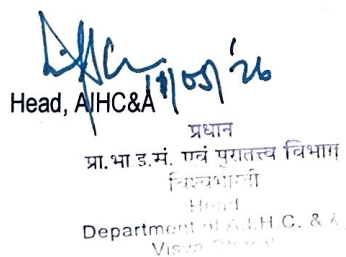 11/05/'26
Head, AIHC&A
प्रधान
प्रा.भा.इ.सं. एवं पुरातत्त्व विभाग
विश्वभारती
Head
Department of A.I.H.C. & A.
Visva